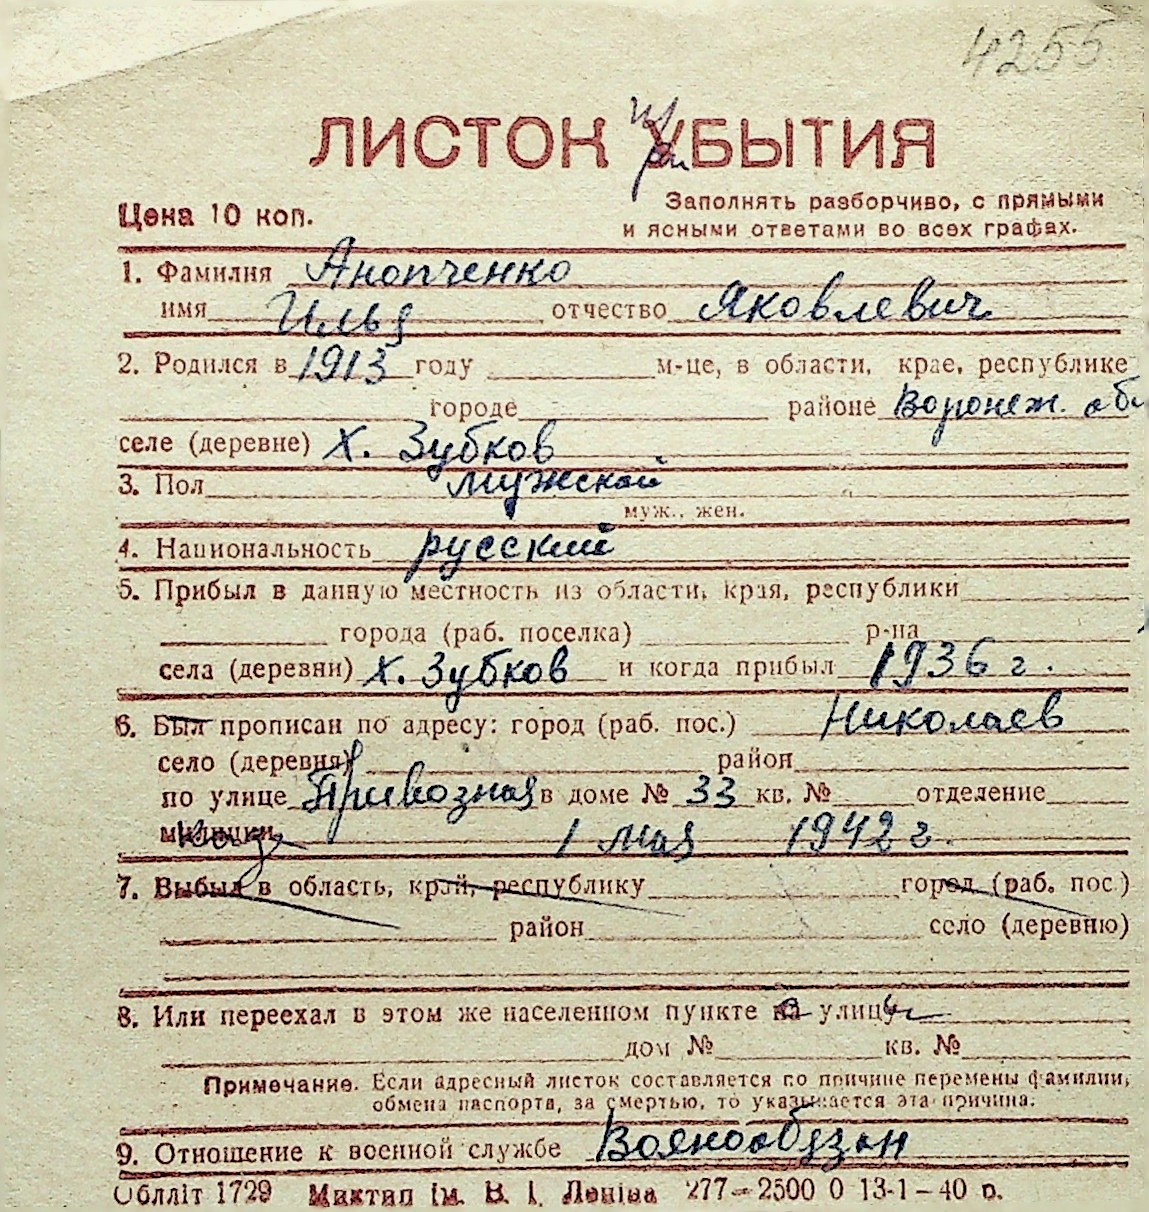 4255
ЛИСТОК УБЫТИЯ
Цена 10 коп.
Заполнять разборчиво, с прямыми
и ясными ответами во всех графах.
1. Фамилия Анопченко
имя Илья отчество Яковлевич
2. Родился в 1913 году м-це, в области, крае, республике
городе районе Воронеж. обл
селе (деревне) х. Зубков
3. Пол мужской
муж., жен.
4. Национальность русский
5. Прибыл в данную местность из области, края, республики
города (раб. поселка) р-на
села (деревни) х. Зубков и когда прибыл 1936 г.
6. Был прописан по адресу: город (раб. пос.) Николаев
село (деревня) район
по улице Привозная в доме № 33 кв. № отделение
милиции 1 мая 1942 г.
7. Выбыл в область, край, республику город (раб. пос.)
район село (деревню)
8. Или переехал в этом же населенном пункте на улицу
дом № кв. №
Примечание. Если адресный листок составляется по причине перемены фамилии,
обмена паспорта, за смертью, то указывается эта причина.
9. Отношение к военной службе Воянообязан
Облліт 1729 Миктип ім. В. І. Леніна 277-2500 0 13-1-40 р.